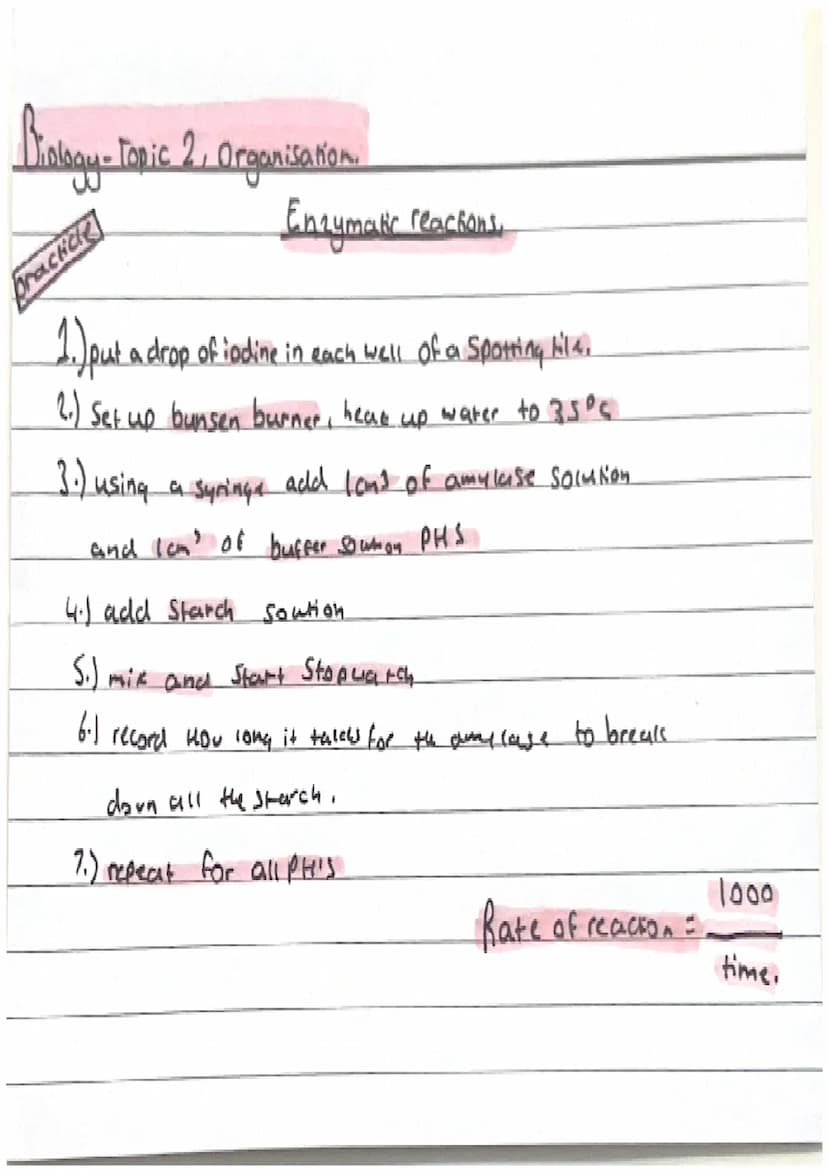 Biology - Topic 2, Organisation.
Enzymatic reactions.
practicle
1.) put a drop of iodine in each well of a Spotting tile.
2.) Set up bunsen burner, heat up water to 35°c
3.) using a syringe add 1cm3 of amylase Solution
and 1cm³ of buffer solution PH5
4.) add Starch soution
5.) mix and Start Stopwatch
6.) record How long it takes for the amylase to break
down all the starch.
7.) repeat for all PH's
Rate of reaction = 1000
time.